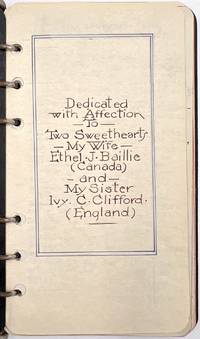 Dedicated
with Affection
— To —
Two Sweethearts
— My Wife —
Ethel. J. Baillie
(Canada)
— and —
My Sister
Ivy. C. Clifford.
(England)